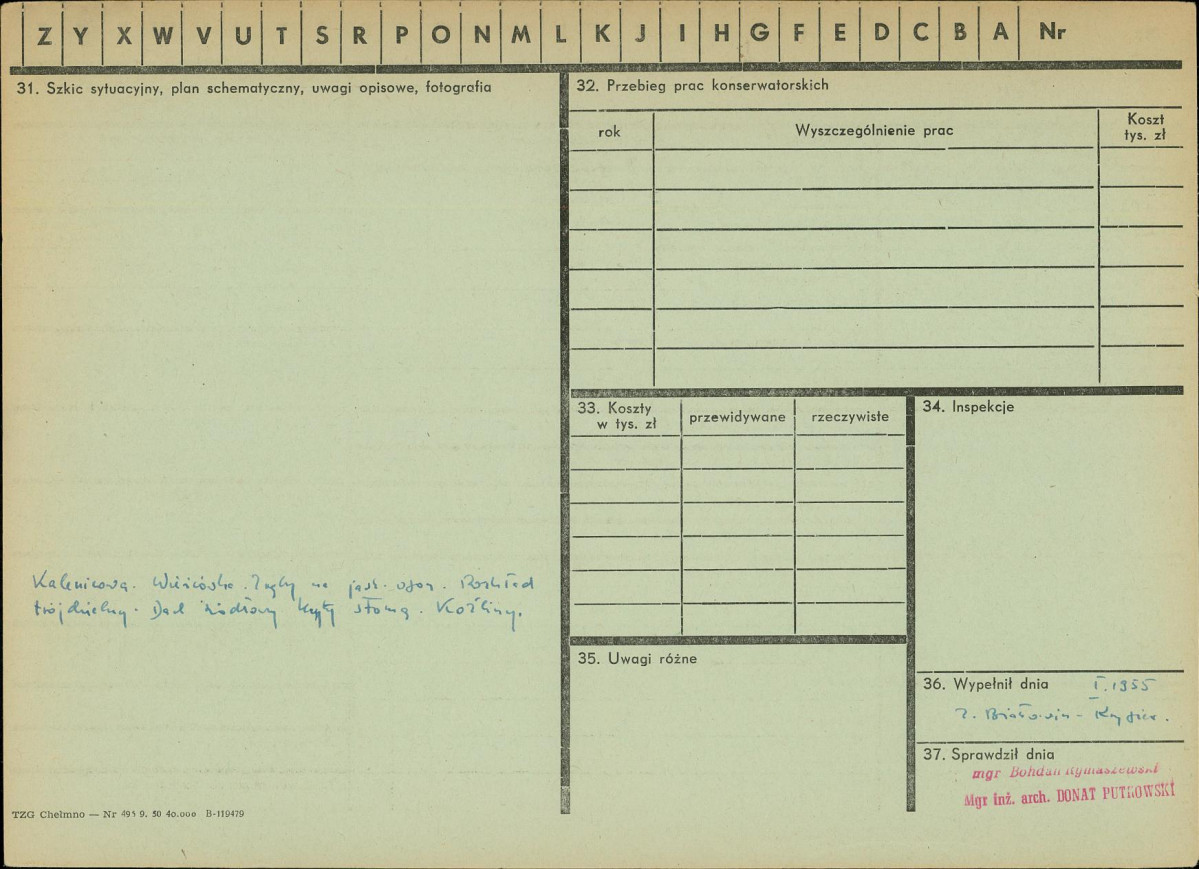 Z Y X W V U T S R P O N M L K J I H G F E D C B A Nr
31. Szkic sytuacyjny, plan schematyczny, uwagi opisowe, fotografia
Zręby na Rozkład
trójdzielny. Dach kryty słomą.
TZG Chełmno — Nr 495 9. 50 40.000 B-119479
32. Przebieg prac konserwatorskich
rok
Wyszczególnienie prac
Koszt
tys. zł
33. Koszty
w tys. zł
przewidywane
rzeczywiste
34. Inspekcje
35. Uwagi różne
36. Wypełnił dnia I.1955
37. Sprawdził dnia
mgr Bohdan Rymaszewski
Mgr inż. arch. DONAT PUTKOWSKI